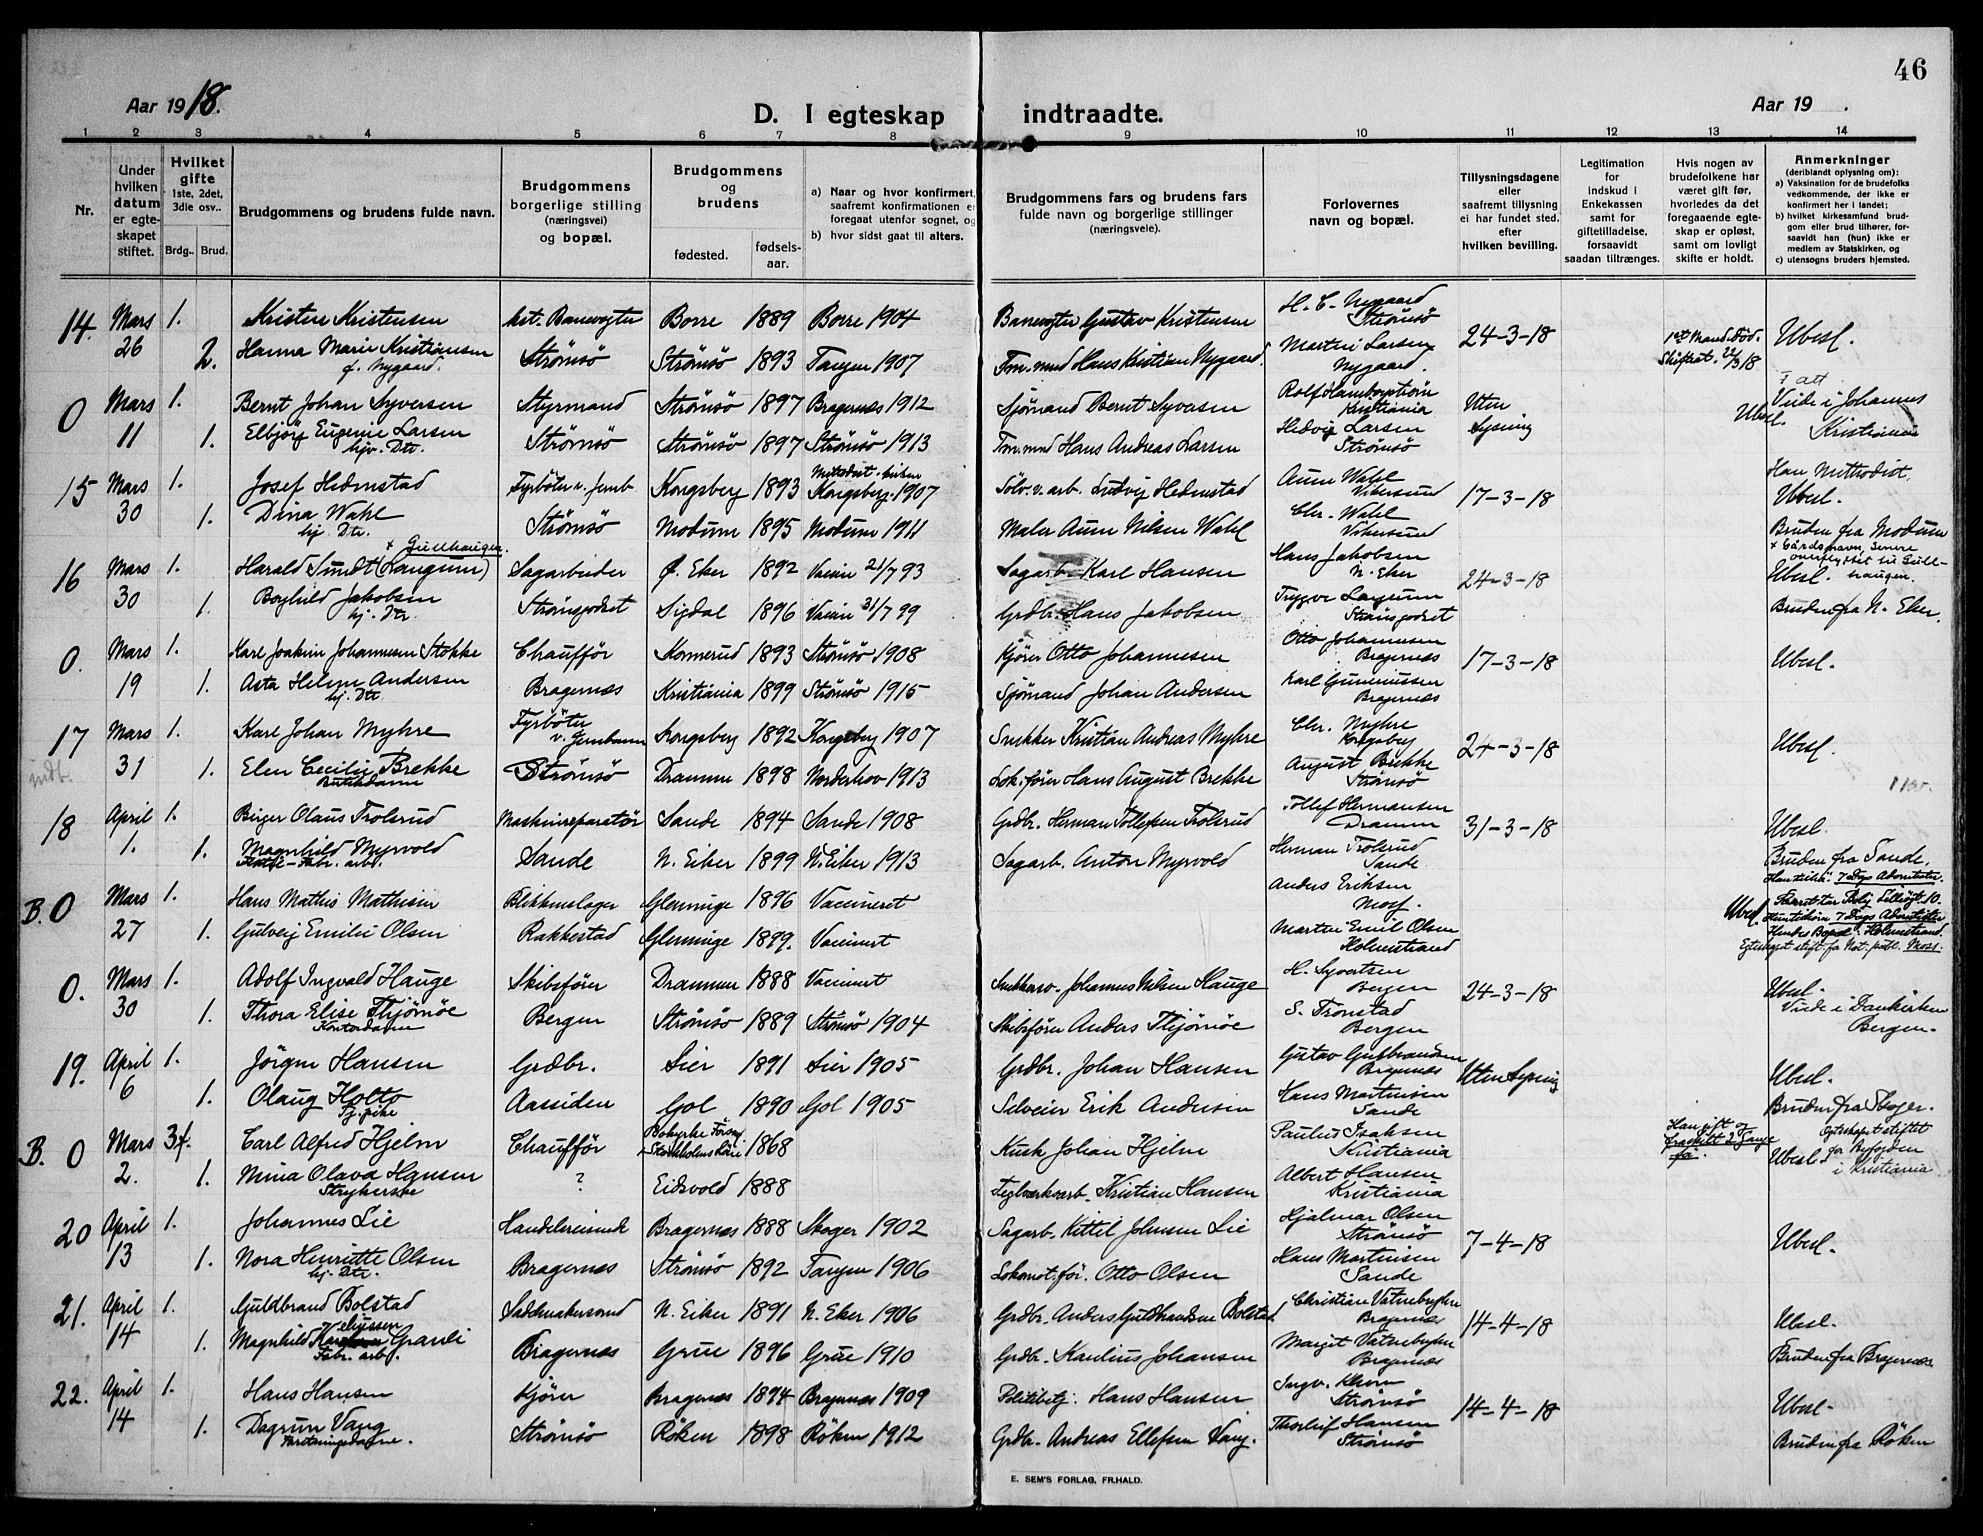 46
Aar 1918.
D. I egteskap indtraadte.
Aar 19 .
1 2 3 4 5 6 7 8 9 10 11 12 13 14
Nr.
Under hvilken datum er egteskapet stiftet.
Hvilket gifte 1ste, 2det, 3die osv..
Brdg..
Brud.
Brudgommens og brudens fulde navn.
Brudgommens borgerlige stilling (næringsvei) og bopæl.
Brudgommens og brudens
fødested.
fødselsaar.
a) Naar og hvor konfirmert, saafremt konfirmationen er foregaat utenfor sognet, og
b) hvor sidst gaat til alters.
Brudgommens fars og brudens fars fulde navn og borgerlige stillinger (næringsveie).
Forlovernes navn og bopæl.
Tillysningsdagene eller saafremt tillysning ei har fundet sted, efter hvilken bevilling.
Legitimation for indskud i Enkekassen samt for giftetilladelse, forsaavidt saadan tiltrænges.
Hvis nogen av brudefolkene har været gift før, hvorledes da det foregaaende egteskap er opløst, samt om lovligt skifte er holdt.
Anmerkninger (deriblandt oplysning om): a) Vaksination for de brudefolks vedkommende, der ikke er konfirmert her i landet; b) hvilket kirkesamfund brudgom eller brud tilhører, forsaavidt han (hun) ikke er medlem av Statskirken, og c) utensogns bruders hjemsted.
14. Mars 1. Kristen Kristensen Banevogter Borre 1889 Borre 1904 Banevogter Gustav Kristensen H. C. Nygaard Strömsö 24-3-18 1ste Mand død. Ubesl.
26 2. Hanna Marie Kristiansen f. Nygaard. Strömsö Strömsö 1893 Tangen 1907 Tm. mnd Hans Kristian Nygaard. Martin Larsen Nygaard. Skifteat. 22/3 18
0 Mars 1. Bernt Johan Syversen Styrmand Strömsö 1897 Bragernæs 1912 Sjömand Bernt Syversen Kristiania Uten Lysning Ubesl. Viede i Johannes Kristiania
11 1. Elbjörg Eugenie Larsen hjv. Dtr. Strömsö Strömsö 1897 Strömsö 1913 Tm. mnd Hans Andreas Larsen Hedvig Larsen Strömsö
15 Mars 1. Josef Hedmstad Fyrböter v. Jernb. Kongsberg 1893 Kongsberg 1907 Sölv. v. arb. Ludvig Hedmstad Aum Wahl Vikersund 17-3-18 Han Methodist. Ubesl.
30 1. Dina Wahl hj. Dtr. Strömsö Modum 1895 Modum 1911 Maler Aum Nilsen Wahl Chr. Wahl Vikersund Bruden fra Modum
16 Mars 1. Harald Sundt (Langum) + Gullhaugen. Sagarbeider Ø. Eker 1892 Vaccin 21/7 93 Sagarb. Karl Hansen Hans Jakobsen N. Eker 24-3-18 + Gårdsnavn, senere til Gullhaugen. Ubesl.
30 1. Borghild Jakobsen hj. Dtr. Strömsgodset Sigdal 1896 Vaccin 31/7 99 Grdbr. Hans Jakobsen Trygve Langum Strömsgodset Bruden fra N. Eker.
0. Mars 1. Karl Joakim Johannesen Stokke Chaufför Konnerud 1893 Strömsö 1908 Kjörer Otto Johannesen Otto Johannesen Bragernæs 17-3-18 Ubesl.
19 1. Asta Helene Andersen hj. Dtr. Bragernæs Kristiania 1899 Strömsö 1915 Sjömand Johan Andersen Karl Bragernæs
17 Mars 1. Karl Johan Myhre Fyrböter v. Jernbanen Kongsberg 1892 Kongsberg 1907 Snekker Kristian Andreas Myhre Chr. Myhre Kongsberg 24-3-18 Ubesl.
indb. 31 1. Elen Cecilie Brekke Butikdame Strömsö Drammen 1898 Norderhov 1913 Lok. förer Hans August Brekke August Brekke Strömsö
18 April 1. Birger Olaus Trolsrud Maskinreparatör Sande 1894 Sande 1908 Grdbr. Herman Tollefsen Trolsrud Tollef Hermansen Drammen 31-3-18 Ubesl.
1. 1. Magnhild Myrvold Fabr. arb. Sande N. Eiker 1899 N. Eiker 1913 Sagarb. Anton Myrvold Herman Trolsrud Sande. Bruden fra Sande.
B. 0 Mars 1. Hans Mathis Mathisen Blikkenslager Glemminge 1896 Vaccineret Anders Eriksen Moss. Ubesl. 7 Dags Adventister.
27 1. Gulveig Emilie Olsen Rakkestad Glemminge 1899. Vaccinert Martin Emil Olsen Holmestrand 7 Dags Adventister Hendes Bopæl: Holmestrand. Egteskapet stift. fra Not. publ. Moss.
0. Mars 1. Adolf Ingvald Hauge Skibsförer Drammen 1888 Vaccinert Johannes Nilsen Hauge H. Syvertsen Bergen 24-3-18 Ubesl. Viede i Domkirken Bergen.
30 1. Thora Elise Thjömöe Kontordame Bergen Strömsö 1889 Strömsö 1904 Skibsförer Anders Thjömöe S. Tronstad Bergen
19. April 1. Jörgen Hansen Grdbr. Lier 1891 Lier 1905 Grdbr. Johan Hansen Gustav Gulbrandsen Bragernæs Uten Lysning Ubesl.
6 1. Olaug Holto Tj. pike Aassiden Gol 1890 Gol 1905 Selveier Erik Andersen Hans Martinsen Sande Bruden fra Skoger.
B. 0 Mars 3f. Carl Alfred Hjelm Chaufför Stockholms Län 1868 Kusk Johan Hjelm Paulus Isaksen Kristiania Han gift og fraskilt 2 Gange før. Egteskapet stiftet fra Byfogden i Kristiania Ubesl.
2. 1. Mina Olava Hansen Strykerske ? Eidsvold 1888 Teglværksarb. Kristian Hansen Albert Hansen Kristiania
20 April 1. Johannes Lie Handelsreisende Bragernæs 1888 Skoger 1902 Sagarb. Kittel Johnsen Lie Hjalmar Olsen Strömsö 7-4-18 Ubesl.
13 1. Nora Henriette Olsen hj. Dtr. Bragernæs Strömsö 1892 Tangen 1906 Lokomot. för. Otto Olsen Hans Martinsen Sande
21. April 1. Guldbrand Bolstad Sadelmakersvend N. Eiker 1891 N. Eker 1906 Grdbr. Anders Guldbrandsen Bolstad. Christian Vatnebryhn Bragernæs 14-4-18 Ubesl.
14 1. Magnhild Granli Fabr. arb. Bragernæs Grue 1896 Grue 1910 Grdbr. Kaulius Johansen Margit Vatnebryhn Bragernæs Bruden fra Bragernæs
22. April 1. Hans Hansen Kjörer Bragernæs 1894 Bragernæs 1909 Politibetj. Hans Hansen Ingv. Strömsö 14-4-18 Ubesl.
14 1. Dagrun Vang Forretningsdame. Strömsö Röken 1898 Röken 1912 Grdbr. Andreas Ellefsen Vang. Thorleif Hansen Strömsö Bruden fra Röken
E. SEM'S FORLAG, FR.HALD.